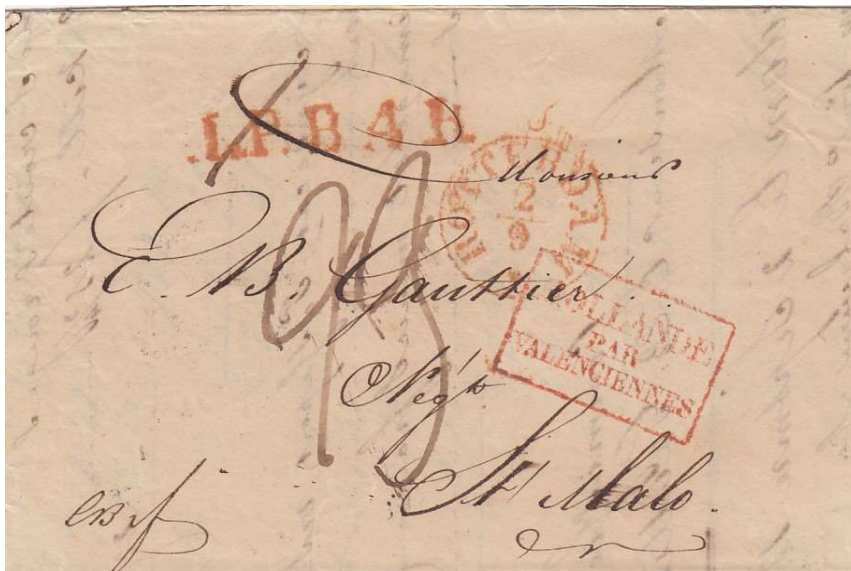 L.P.B.4.R.
ROTTERDAM
2
9
Monsieur
E. B. Gauthier
HOLLANDE
PAR
VALENCIENNES
Négt
St Malo.